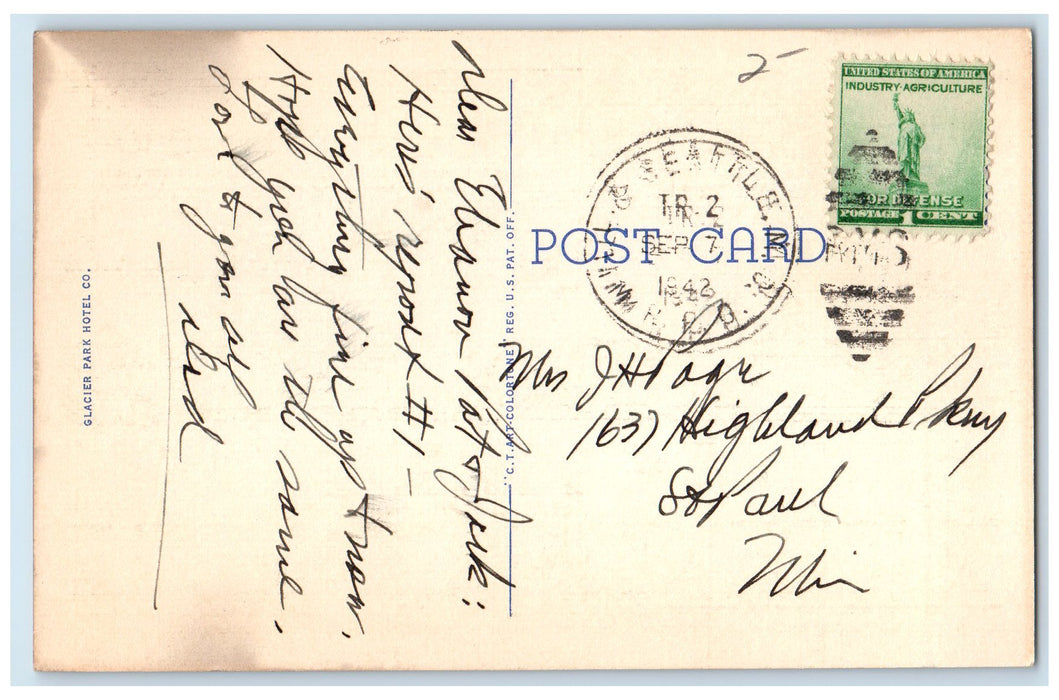 GLACIER PARK HOTEL CO.
Dear Eleanor Pat & Jack:
Here's report #1 –
Everything fine up t' now.
Hope you're all the same.
Love to you all
Dad
"C.T. ART-COLORTONE" REG. U.S. PAT. OFF.
2
POST CARD
SEATTLE.
TR. 2
SEP 7
1942
R.P.O.
UNITED STATES OF AMERICA
INDUSTRY-AGRICULTURE
FOR DEFENSE
POSTAGE 1 CENT
Mrs J H Page
1637 Highland Pkwy
St Paul
Min